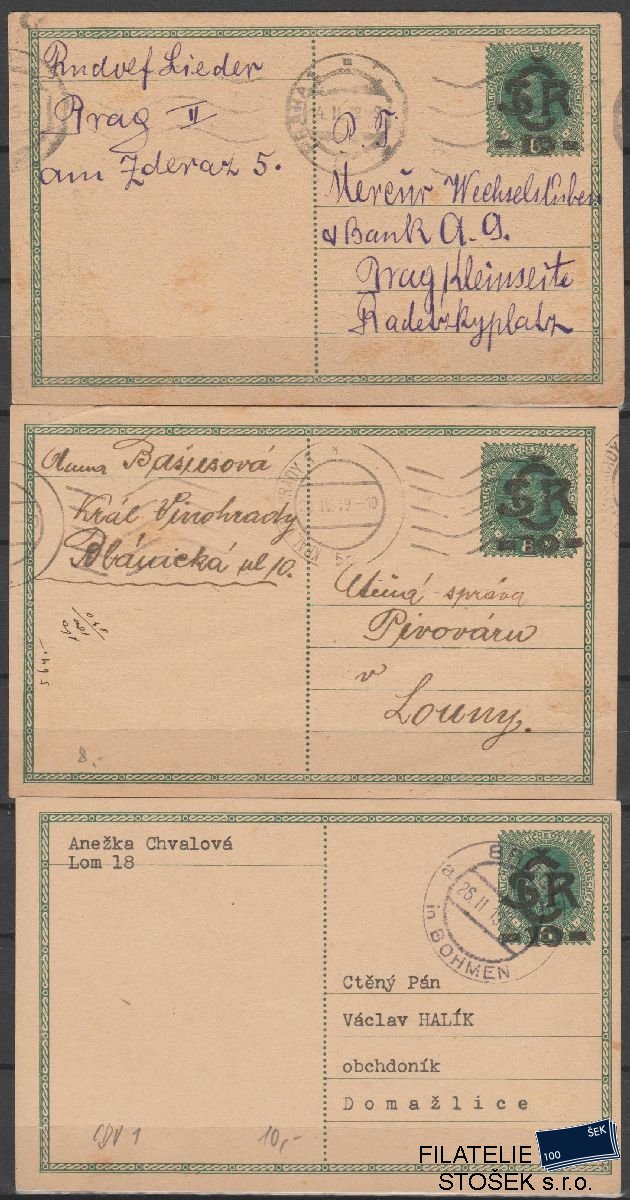 Rudolf Lieder
Prag II
am Zderaz 5.
PRAHA
ČSR
10
P. T.
Mercur Wechselstuben
& Bank A. G.
Prag Kleinseite
Radetzkyplatz
Anna
Král Vinohrady
Blánická ul 10.
IV. 19 - 10
ČSR
10
správa
Pivováru
v
Louny.
8.-
Anežka Chvalová
Lom 18
26. II
a
in BÖHMEN
ČSR
10
Ctěný Pán
Václav HALÍK
obchdoník
Domažlice
CDV 1
10,-
FILATELIE
STOŠEK s.r.o.
100
ŠEK